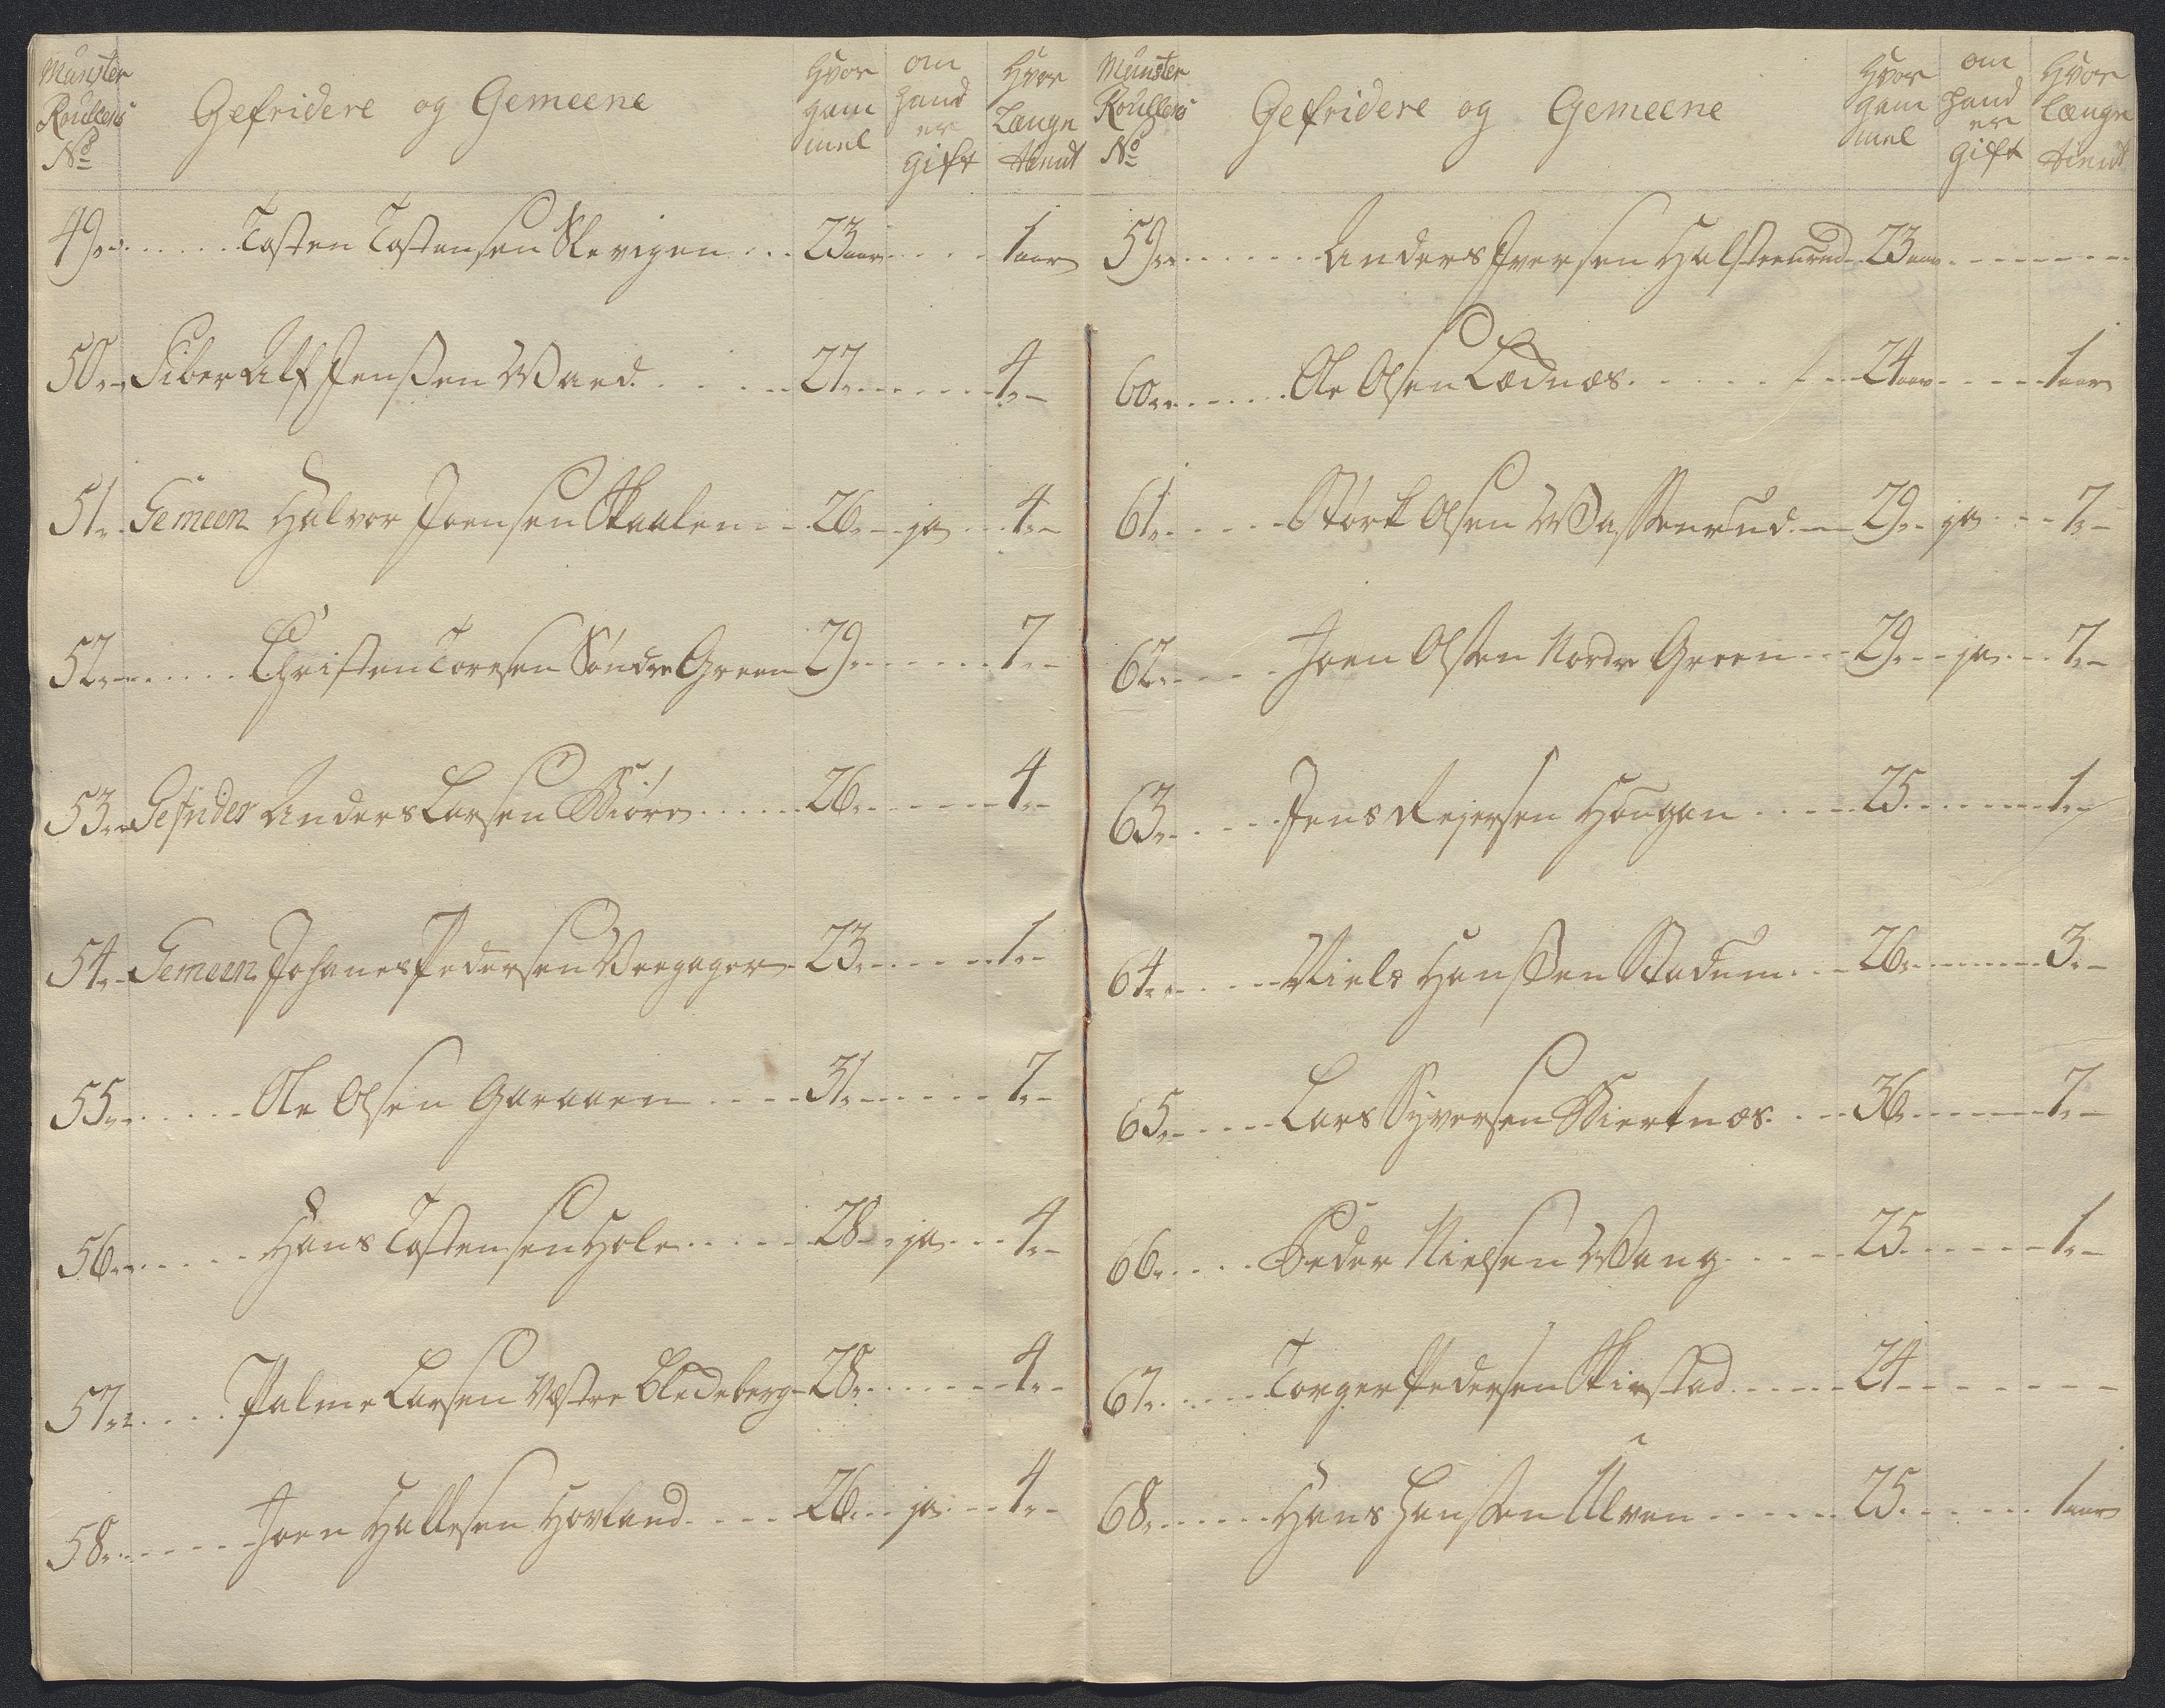 Münster Roullens No
Gefridere og Gemeene
Hvor gam mel
om hand er gift
Hvor Længe tient
49 Tosten Tostensen Klevigen 23 aar 1 aar
50 Siber Ulf Jenssen Waed 27 4
51 Gemeen Halvor Joensen Skaalen 26 ja 4
52 Christen Toresen Søndre Green 29 7
53 Gefrider Anders Larsen Kiøre 26 4
54 Gemeen Johanes Pedersen Veegager 23 1
55 Ole Olsen Garaaen 31 7
56 Hans Tostensen Hole 28 ja 4
57 Palme Larsen Westre Bledeberg 28 4
58 Joen Hallesen Hovland 26 ja 4
Münster Roullens No
Gefridere og Gemeene
Hvor gam mel
om hand er gift
Hvor længe tient
59 Anders Iversen Halsteenrud 23 aar
60 Ole Olsen Lædnæs 24 aar 1 aar
61 Størk Olsen Wasstenrud 29 ja 7
62 Joen Olsen Nordre Green 29 ja 7
63 Jens Rejersen Hougan 25 1
64 Niels Hanssen Stadum 26 3
65 Lars Syversen Kiertnæs 36 7
66 Peder Nielsen Wang 25 1
67 Torger Pedersen Skirstad 24
68 Hans Hanssen Ulven 25 1 aar